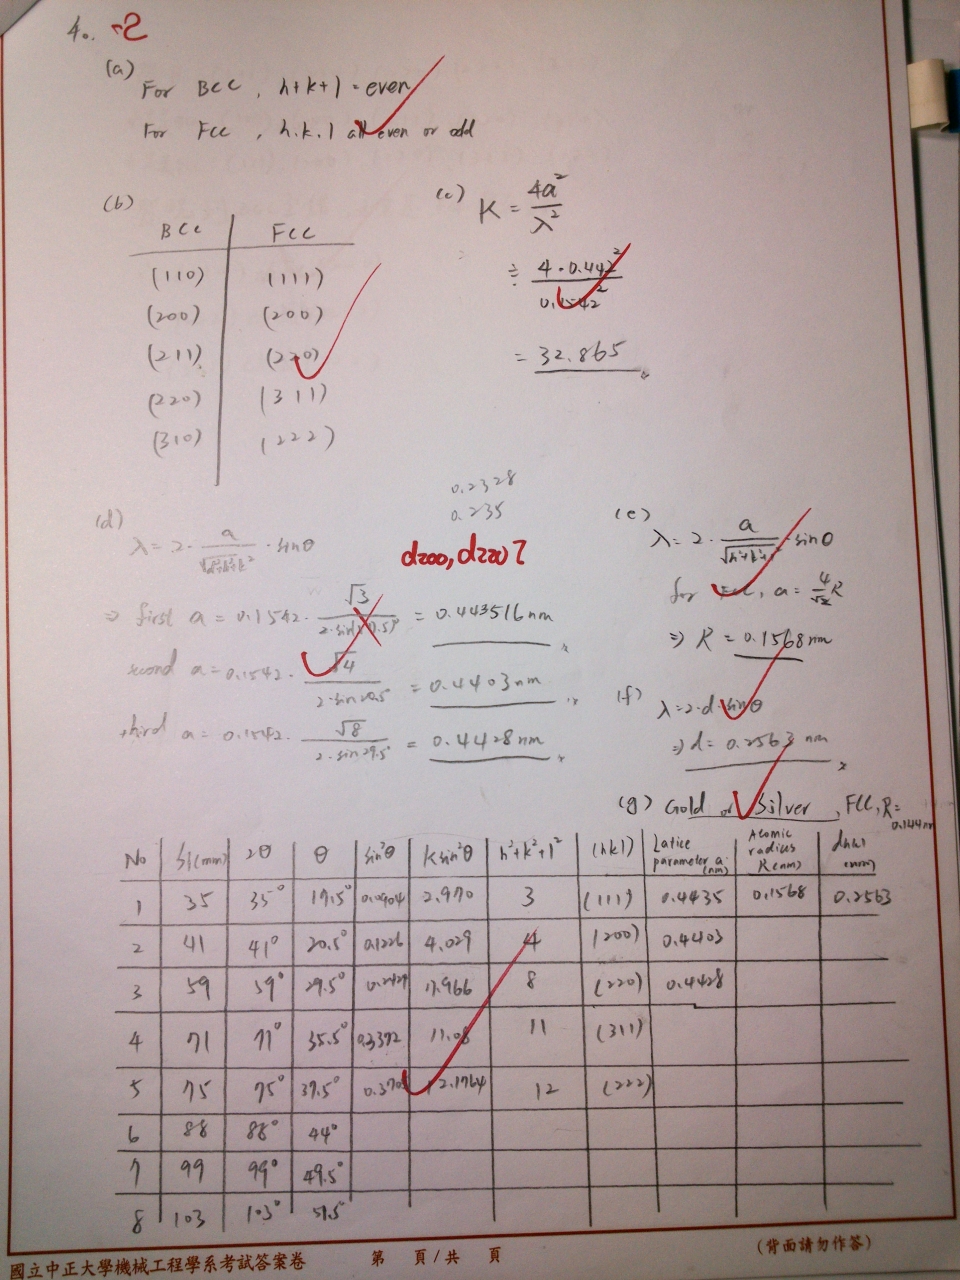 4. -2
(a)
For BCC, h+k+l = even
For FCC, h.k.l all even or odd
(b)
BCC FCC
(110) (111)
(200) (200)
(211) (220)
(220) (311)
(310) (222)
(c) K = 4a²/λ²
≑ 4·0.442²/0.1542²
= 32.865
0.2328
0.235
d200, d220?
(d)
λ = 2· a/√(h²+k²+l²) ·sinθ
⇒ first a = 0.1542· √3/(2·sin(17.5)°) = 0.443516 nm
second a = 0.1542· √4/(2·sin20.5°) = 0.4403 nm
third a = 0.1542· √8/(2·sin29.5°) = 0.4428 nm
(e)
λ = 2· a/√(h²+k²+l²) ·sinθ
for FCC, a = 4/√2 R
⇒ R = 0.1568 nm
(f)
λ = 2·d·sinθ
⇒ d = 0.2563 nm
(g) Gold or Silver, FCC, R = 0.144nm
No Si(mm) 2θ θ sin²θ Ksin²θ h²+k²+l² (hkl) Latice parameter a (nm) Atomic radius R(nm) dhkl (nm)
1 35 35° 17.5° 0.0904 2.970 3 (111) 0.4435 0.1568 0.2563
2 41 41° 20.5° 0.1226 4.029 4 (200) 0.4403
3 59 59° 29.5° 0.2424 7.966 8 (220) 0.4428
4 71 71° 35.5° 0.3372 11.08 11 (311)
5 75 75° 37.5° 12.1764 12 (222)
6 88 88° 44°
7 99 99° 49.5°
8 103 103° 51.5°
國立中正大學機械工程學系考試答案卷 第 頁/共 頁 (背面請勿作答)